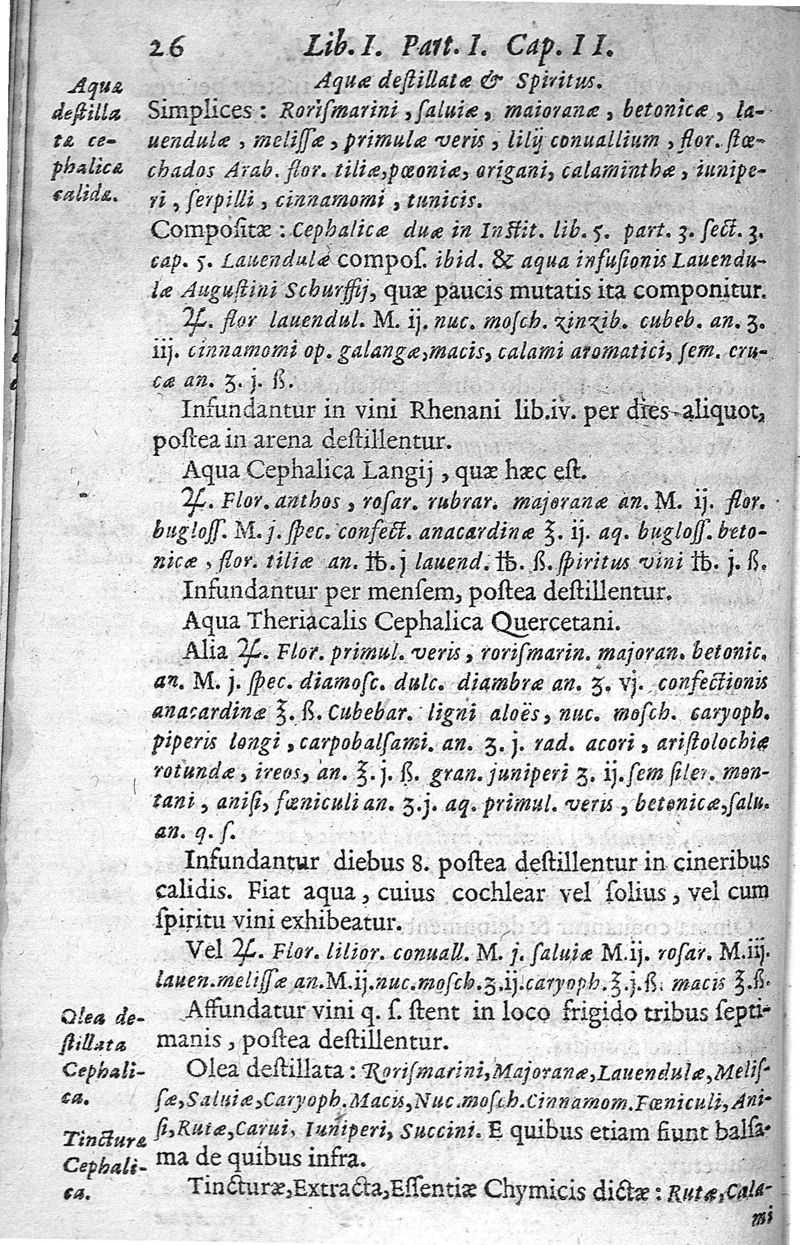 26 Lib. I. Part. I. Cap. II.
Aquæ deſtillatæ & Spiritus.
Aquæ
deſtilla
tæ ce-
phalicæ
calidæ.
Simplices : Roriſmarini , ſaluiæ , maioranæ , betonicæ , la-
uendulæ , meliſſæ , primulæ veris , lilij conuallium , flor. ſtœ-
chados Arab. flor. tiliæ, pœoniæ, origani, calaminthæ , iunipe-
ri , ſerpilli , cinnamomi , tunicis.
Compoſitæ : Cephalicæ duæ in Inſtit. lib. 5. part. 3. ſect. 3.
cap. 5. Lauendulæ compoſ. ibid. & aqua infuſionis Lauendu-
læ Auguſtini Schurffij, quæ paucis mutatis ita componitur.
♃. flor lauendul. M. ij. nuc. moſch. zinzib. cubeb. an. ʒ.
iij. cinnamomi op. galangæ, macis, calami aromatici, ſem. eru-
cæ an. ʒ. j. ß.
Infundantur in vini Rhenani lib. iv. per dies aliquot,
poſtea in arena deſtillentur.
Aqua Cephalica Langij , quæ hæc eſt.
♃. Flor. anthos , roſar. rubrar. majoranæ an. M. ij. flor.
bugloſſ. M. j. ſpec. confect. anacardinæ ℥. ij. aq. bugloſſ. beto-
nicæ , flor. tiliæ an. ℔. j lauend. ℔. ß. ſpiritus vini ℔. j. ß.
Infundantur per menſem, poſtea deſtillentur.
Aqua Theriacalis Cephalica Quercetani.
Alia ♃. Flor. primul. veris , roriſmarin. majoran. betonic.
an. M. j. ſpec. diamoſc. dulc. diambræ an. ʒ. vj. confectionis
anacardinæ ℥. ß. Cubebar. ligni aloës , nuc. moſch. caryoph.
piperis longi , carpobalſami. an. ʒ. j. rad. acori , ariſtolochiæ
rotundæ , ireos, an. ℥. j. ß. gran. juniperi ʒ. ij. ſem ſiler. mon-
tani , aniſi, fœniculi an. ʒ. j. aq. primul. veris , betonicæ, ſalu.
an. q. ſ.
Infundantur diebus 8. poſtea deſtillentur in cineribus
calidis. Fiat aqua , cuius cochlear vel ſolius , vel cum
ſpiritu vini exhibeatur.
Vel ♃. Flor. lilior. conuall. M. j. ſaluiæ M. ij. roſar. M. iij.
lauen. meliſſæ an. M. ij. nuc. moſch. ʒ. ij. caryoph. ℥. j. ß. macis ℥. ß.
Affundatur vini q. ſ. ſtent in loco frigido tribus ſepti-
manis , poſtea deſtillentur.
Olea de-
ſtillata
Cephali-
ca.
Olea deſtillata : Roriſmarini, Majoranæ, Lauendulæ, Meliſ-
ſæ, Saluiæ, Caryoph. Macis, Nuc. moſch. Cinnamom. Fœniculi, Ani-
ſi, Rutæ, Carui, Iuniperi, Succini. E quibus etiam fiunt balſa-
ma de quibus infra.
Tincturæ
Cephali-
ca.
Tincturæ, Extracta, Eſſentiæ Chymicis dictæ : Rutæ, Cala-
mi